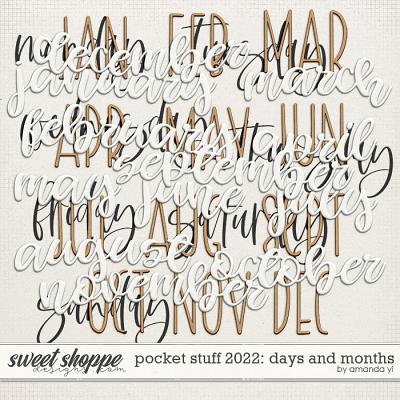 JAN FEB MAR
monday tuesday
december
january march
APR MAY JUN
wednesday thursday
february april
september
may june july
friday saturday
JUL AUG SEPT
august october
november
sunday
OCT NOV DEC
sweet shoppe designs.com
pocket stuff 2022: days and months
by amanda yi